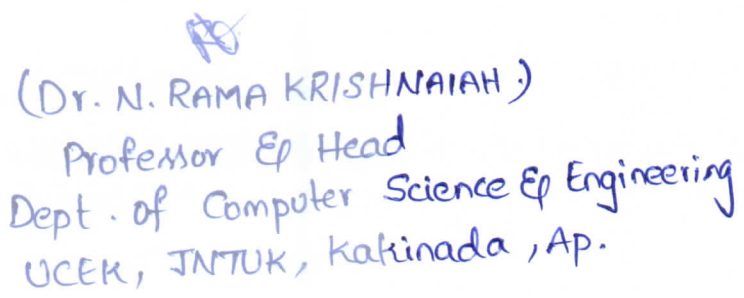 (Dr. N. RAMA KRISHNAIAH.)
Professor & Head
Dept. of Computer Science & Engineering
UCEK, JNTUK, Kakinada, Ap.